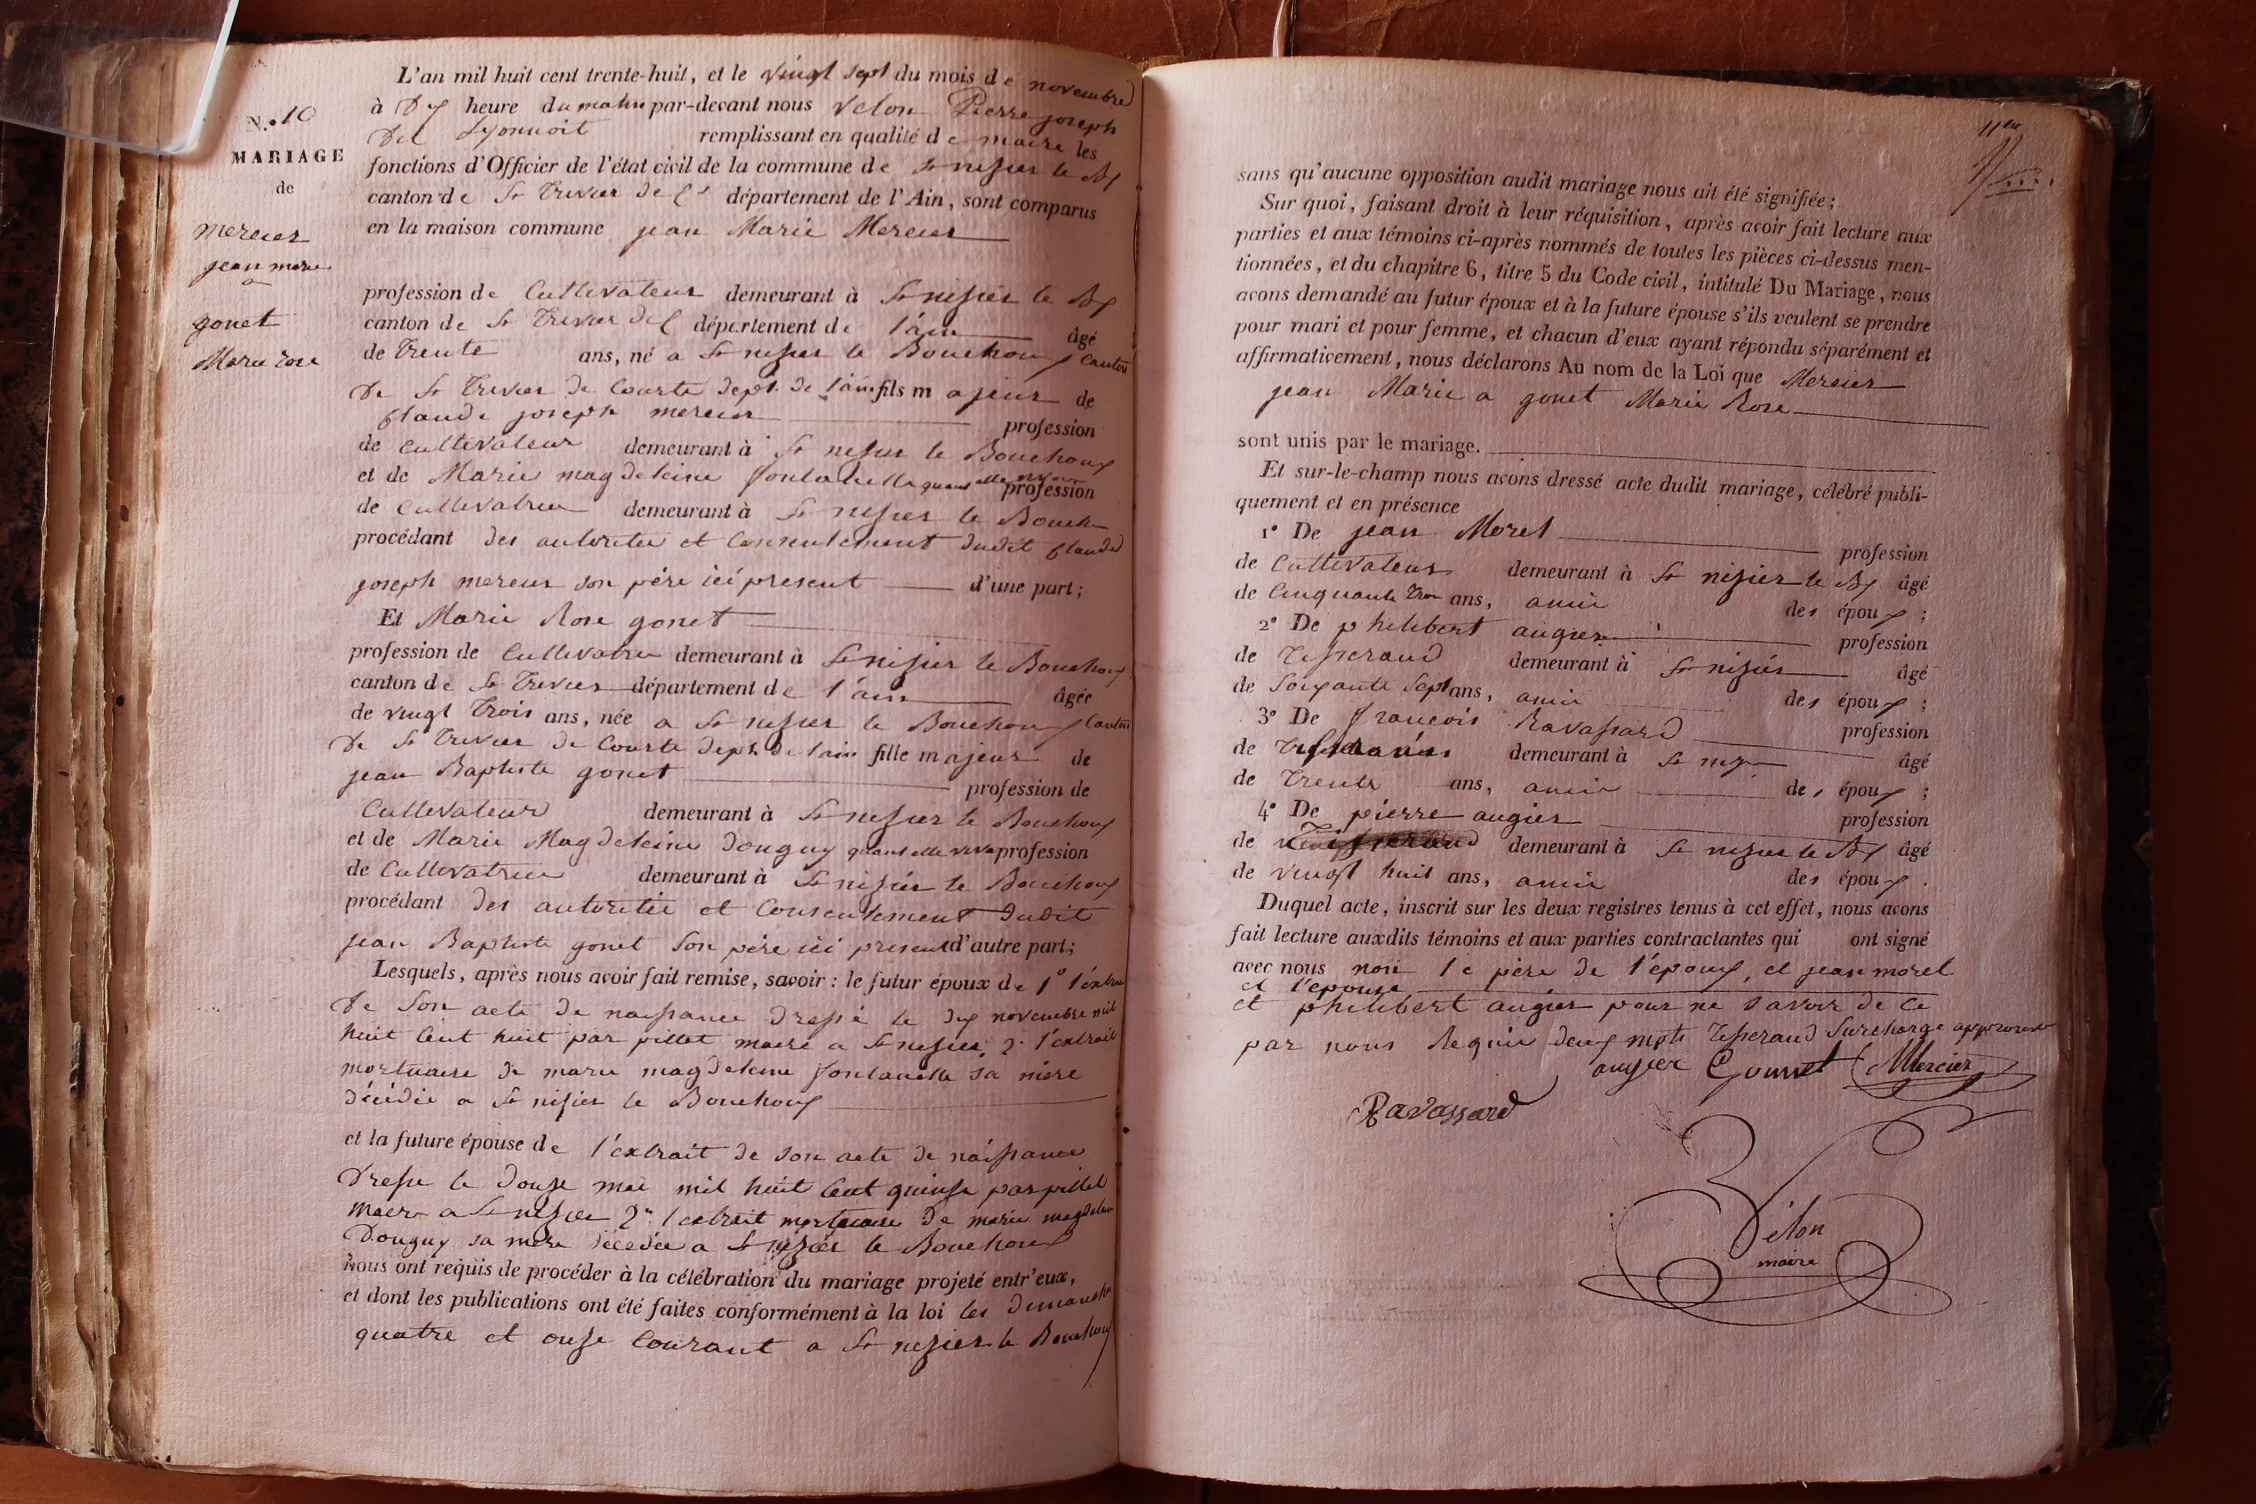 N.° 10
MARIAGE
de
mercier
jean marie
a
gonet
Marie rose
L'an mil huit cent trente-huit, et le vingt sept du mois de novembre
à Dix heure du matin par-devant nous velon Pierre joseph
Del Lyonnoit remplissant en qualité de maire les
fonctions d'Officier de l'état civil de la commune de St nizier le Bx
canton de St Trivier de Cs département de l'Ain, sont comparus
en la maison commune jean Marie Mercier
profession de Cultivateur demeurant à St nizier le Bx
canton de St Trivier de C département de l'ain âgé
de Trente ans, né a St nizier le Bouchoux canton
De St Trivier de Courte dept de l'ain fils majeur de
Claude joseph mercier profession
de cultivateur demeurant à St nizier le Bouchoux
et de Marie magdeleine fontanelle quant elle vivoit profession
de cultivatrice demeurant à St nizier le Bouch
procédant des autorité et consentement dudit Claude
joseph mercier son père ici present d'une part;
Et Marie Rose gonet
profession de Cultivatrice demeurant à St nizier le Bouchoux
canton de St Trivier département de l'ain âgée
de vingt Trois ans, née a St nizier le Bouchoux Canton
De St Trivier de Courte dept de l'ain fille majeur de
jean Baptiste gonet profession de
Cultivateur demeurant à St nizier le Bouchoux
et de Marie Magdeleine Donguy quant elle viva profession
de Cultivatrice demeurant à St nizier le Bouchoux
procédant des autorité et Consentement dudit
jean Baptiste gonet son père ici present d'autre part;
Lesquels, après nous avoir fait remise, savoir : le futur époux de 1° l'extrai
De Son acte de naissance Dressé le dix novembre mil
huit Cent huit par pillet maire a St nizier, 2° l'extrait
mortuaire de marie magdeleine fontanelle sa mère
décédée a St nizier le Bouchoux
et la future épouse de l'extrait de son acte de naissance
Dressé le Douze mai mil huit Cent quinze par pillet
maire a St nizier 2° l'extrait mortuaire de marie magdelei
Donguy sa mère décédée a St nizier le Bouchoux
Nous ont requis de procéder à la célébration du mariage projeté entr'eux,
et dont les publications ont été faites conformément à la loi les dimanche
quatre et onze Courant a St nizier le Bouchoux
11eme
sans qu'aucune opposition audit mariage nous ait été signifiée;
Sur quoi, faisant droit à leur réquisition, après avoir fait lecture aux
parties et aux témoins ci-après nommés de toutes les pièces ci-dessus men-
tionnées, et du chapitre 6, titre 5 du Code civil, intitulé Du Mariage, nous
avons demandé au futur époux et à la future épouse s'ils veulent se prendre
pour mari et pour femme, et chacun d'eux ayant répondu séparément et
affirmativement, nous déclarons Au nom de la Loi que Mercier
jean Marie a gonet Marie Rose
sont unis par le mariage.
Et sur-le-champ nous avons dressé acte dudit mariage, célébré publi-
quement et en présence
1° De jean Morel profession
de Cultivateur demeurant à St nizier le Bx âgé
de Cinquante Trois ans, amie des époux ;
2° De philibert augier profession
de Tisserand demeurant à St nizier âgé
de Soixante Sept ans, amie des époux ;
3° De françois Ravassard profession
de demeurant à St nizier âgé
de Trente ans, amie des époux ;
4° De pierre augier profession
de Tisserand demeurant à St nizier le Bx âgé
de vingt huit ans, amie des époux .
Duquel acte, inscrit sur les deux registres tenus à cet effet, nous avons
fait lecture auxdits témoins et aux parties contractantes qui ont signé
avec nous non le père de l'époux, et jean morel
et l'épouse
et philibert augier pour ne savoir de ce
par nous Requie deux mots Tisserand Surcharge approuvent
augier Gonnet Mercier
Ravassard
Vélon
maire